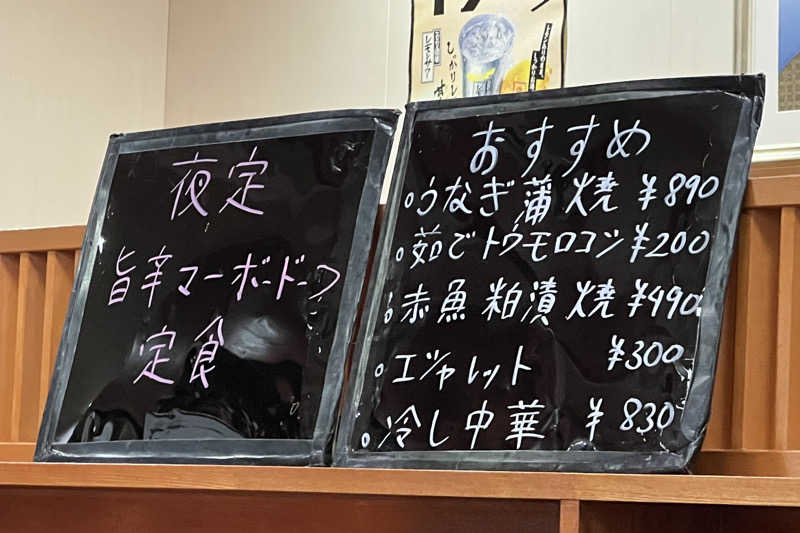 夜定
旨辛マーボードーフ
定食
おすすめ
。うなぎ蒲焼 ¥890
。茹でトウモロコシ ¥200
。赤魚粕漬焼 ¥490
。エシャレット ¥300
。冷し中華 ¥830
レモンサワー
しっかりレ